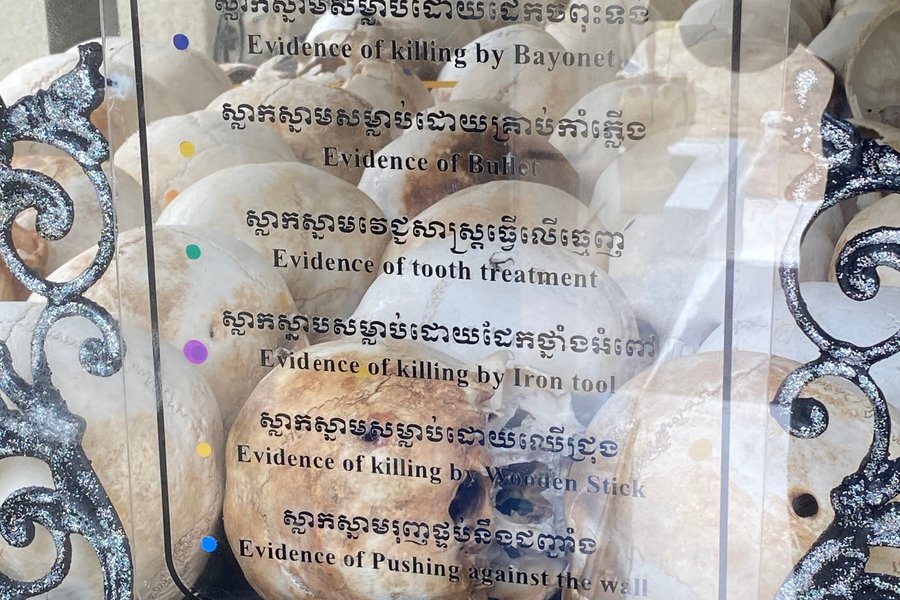 ស្លាកស្នាមសម្លាប់ដោយដែកចំពុះទុង
Evidence of killing by Bayonet
ស្លាកស្នាមសម្លាប់ដោយគ្រាប់កាំភ្លើង
Evidence of Bullet
ស្លាកស្នាមវេជ្ជសាស្ត្រធ្វើលើធ្មេញ
Evidence of tooth treatment
ស្លាកស្នាបសម្លាប់ដោយដែកថ្នាំងអំពៅ
Evidence of killing by Iron tool
ស្លាកស្នាមសម្លាប់ដោយឈើជ្រុង
Evidence of killing by Wooden Stick
ស្លាកស្នាមរុញផ្ទប់នឹងជញ្ជាំង
Evidence of Pushing against the wall